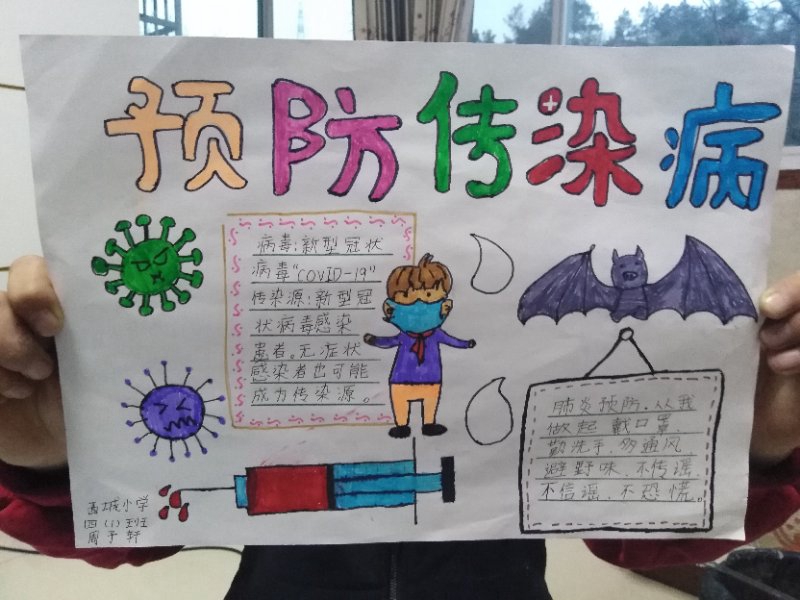 预防传染病
病毒:新型冠状
病毒“COVID-19”
传染源:新型冠
状病毒感染
患者。无症状
感染者也可能
成为传染源。
肺炎预防,从我
做起 戴口罩、
勤洗手、多通风
避野味、不传谣、
不信谣、不恐慌。
西城小学
四(1)班
周于轩